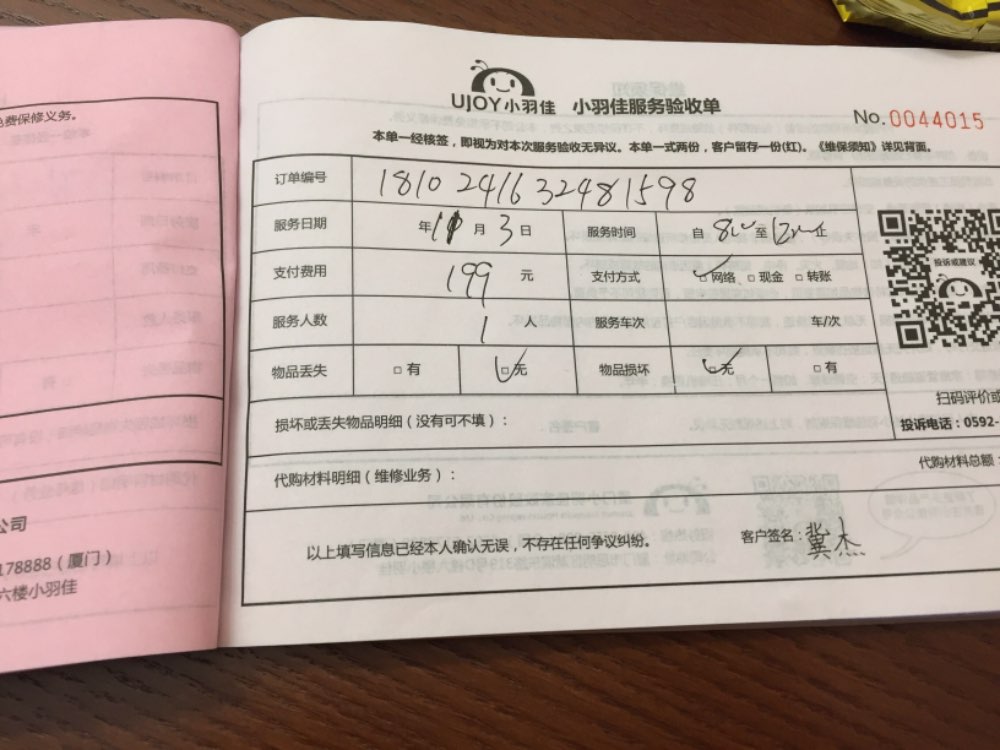 免费保修义务。
公司
178888（厦门）
六楼小羽佳
UJOY小羽佳 小羽佳服务验收单
No.0044015
本单一经核签，即视为对本次服务验收无异议。本单一式两份，客户留存一份(红)。《维保须知》详见背面。
订单编号 1810241632481598
服务日期 年 11 月 3 日 服务时间 自 至
支付费用 199 元 支付方式 □网络 □现金 □转账
服务人数 1 人 服务车次 车/次
物品丢失 □有 □无 物品损坏 □无 □有
投诉或建议
扫码评价或
投诉电话：0592-
损坏或丢失物品明细（没有可不填）：
代购材料明细（维修业务）：
代购材料总额：
以上填写信息已经本人确认无误，不存在任何争议纠纷。
客户签名：冀杰